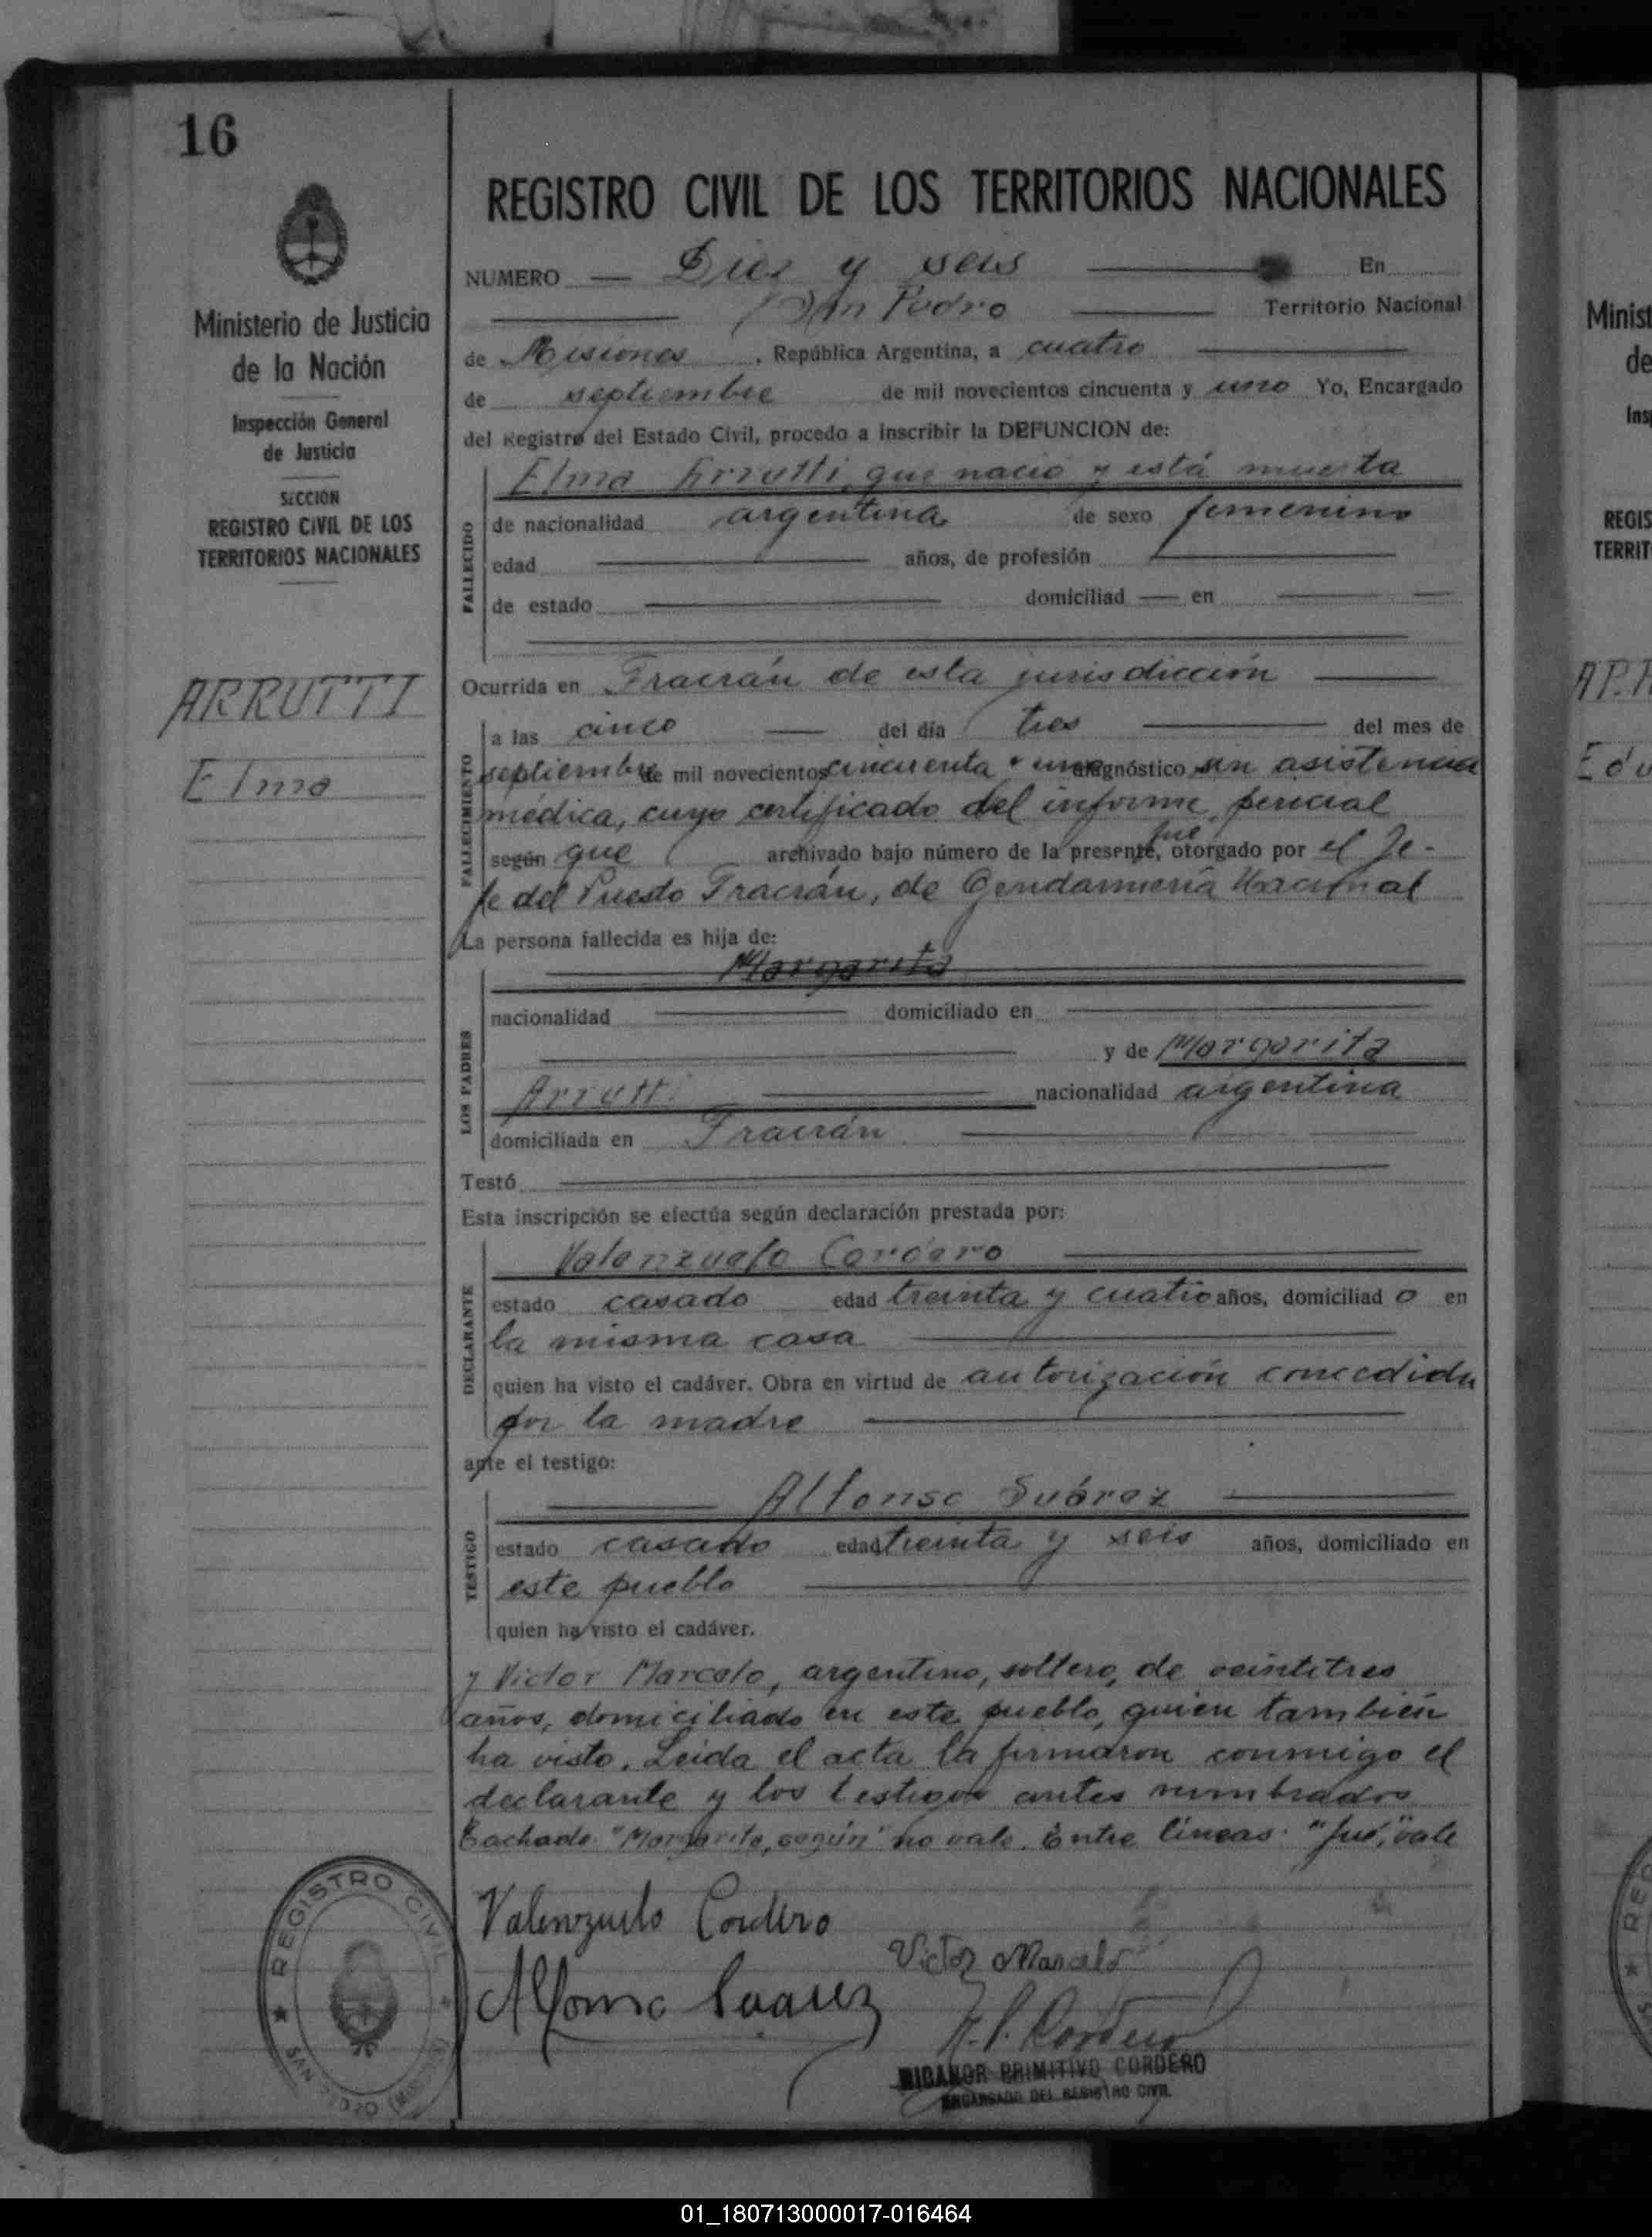 16
REGISTRO CIVIL DE LOS TERRITORIOS NACIONALES
NUMERO Diez y seis En
San Pedro Territorio Nacional
de Misiones, República Argentina, a cuatro
de septiembre de mil novecientos cincuenta y uno Yo, Encargado
del Registro del Estado Civil, procedo a inscribir la DEFUNCION de:
Ministerio de Justicia
de la Nación
Inspección General
de Justicia
SECCION
REGISTRO CIVIL DE LOS
TERRITORIOS NACIONALES
ARRUTTI
Elma
FALLECIDO
Elma Arrutti, que nació y está muerta
de nacionalidad argentina de sexo femenino
edad años, de profesión
de estado domiciliad en
Ocurrida en Fracrán de esta jurisdicción
FALLECIMIENTO
a las cinco del día tres del mes de
septiembre de mil novecientos cincuenta y uno diagnóstico sin asistencia
médica, cuyo certificado del informe pericial
según que archivado bajo número de la presente, fué otorgado por el Je-
fe del Puesto Fracrán, de Gendarmería Nacional
La persona fallecida es hija de:
LOS PADRES
Margarita
nacionalidad domiciliado en
y de Margarita
Arrutti nacionalidad argentina
domiciliada en Fracrán
Testó
Esta inscripción se efectúa según declaración prestada por:
DECLARANTE
Valenzuelo Cordero
estado casado edad treinta y cuatro años, domiciliad o en
la misma casa
quien ha visto el cadáver. Obra en virtud de autorización concedida
por la madre
ante el testigo:
TESTIGO
Alfonso Suárez
estado casado edad treinta y seis años, domiciliado en
este pueblo
quien ha visto el cadáver.
y Victor Marcelo, argentino, soltero, de veintitres
años, domiciliado en este pueblo, quien también
ha visto. Leída el acta la firmaron conmigo el
declarante y los testigos antes nombrados
Tachado: "Margarita, según" no vale. Entre líneas: "fué," vale
Valenzuelo Cordero
Victor Marcelo
Alfonso Suarez
N. P. Cordero
NICANOR PRIMITIVO CORDERO
ENCARGADO DEL REGISTRO CIVIL
REGISTRO CIVIL
SAN PEDRO (MISIONES)
Minist
de
Ins
REGIS
TERRIT
01_180713000017-016464